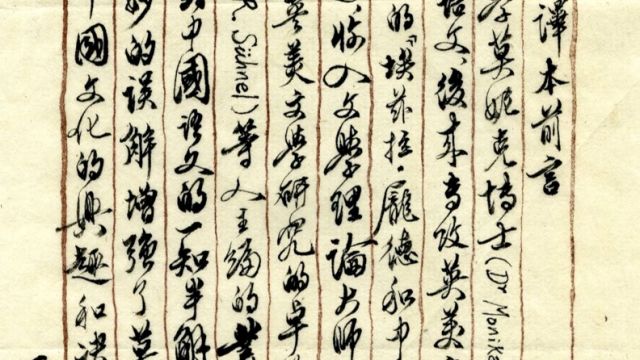 譯本前言
莫妮克博士(Dr Monika
語文,後來專攻英美
的「埃茲拉·龐德和中
收入文學理論大師
英美文學研究的卓
R. Sühnel)等人主編的
中國語文的一知半解
妙的誤解增強了莫
國文化的興趣和